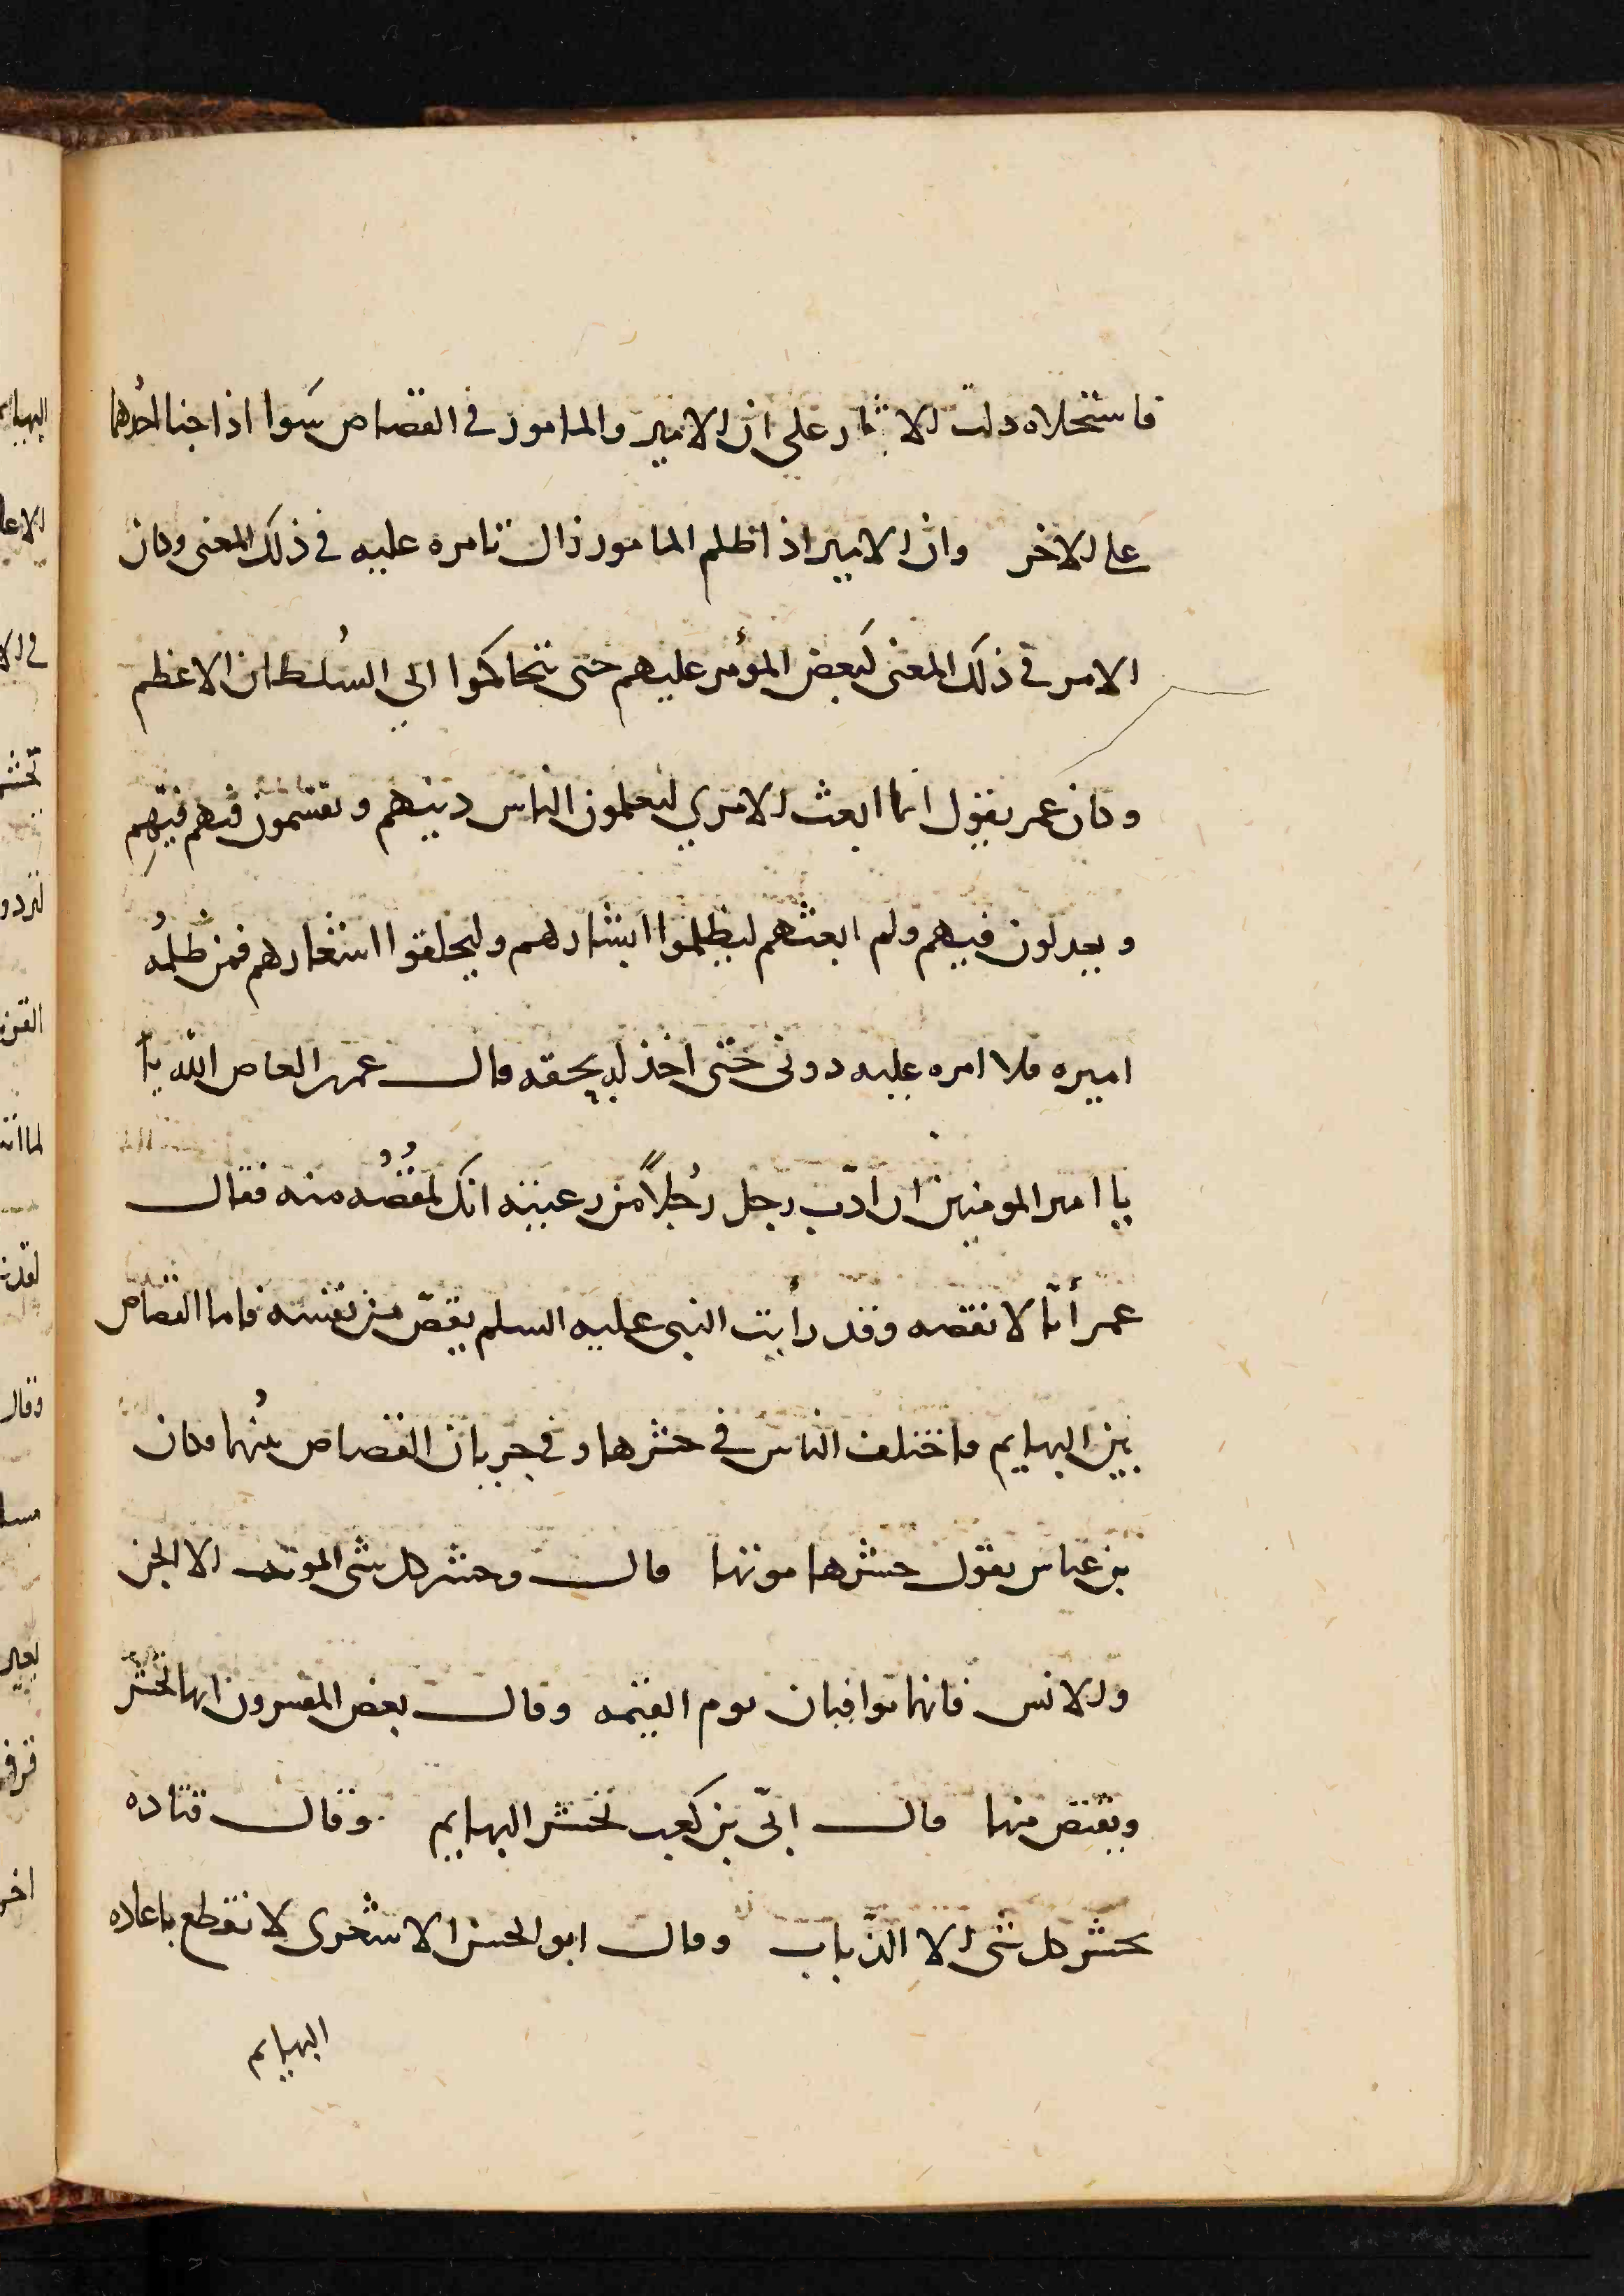 فاستحلاه دلت الاثار علي ان الامير والمامور في القصاص سَوا اذا جنا احدهما
علي الاخر وان الامير اذا ظلم المامور زال تامره عليه في ذلك المعنى وكان
الامر في ذلك المعنى كبعض المؤمر عليهم حتى يتحاكموا الي السُلطان الاعظم
وكان عمر يقول انما ابعث الامري ليعلمون الناس دينهم ويقسمون فيهم فيهم
ويعدلون فيهم ولم ابعثهم ليظلموا ابشارهم وليحلقوا اشعارهم فمن ظلمُه
اميره فلا امره عليه دوني حتى اخذ له بحقه قال عمر العاص الله يا
يا امير المومنين ان ادّب رجل رُجلاً من رعيته انك لمقُصُه منه فقال
عمر أنا لا نقصه وقد رأيت النبي عليه السلم يقصّ من نفسه فاما القصاص
بين البهايم فاختلف الناس في حشرها وفي جريان القصاص بينُها فكان
بن عباس يقول حشرها موتها قال وحشر كل شي الموت الا الجن
والانس فانهما يوافيان يوم القيمه وقال بعض المفسرون انها تحشر
ويقتص منها قال ابيّ بن كعب تحشر البهايم وقال قتاده
يحشر كل شي الا الذباب وقال ابو الحسن الاشعرى لا نقطع باعاده
البهايم